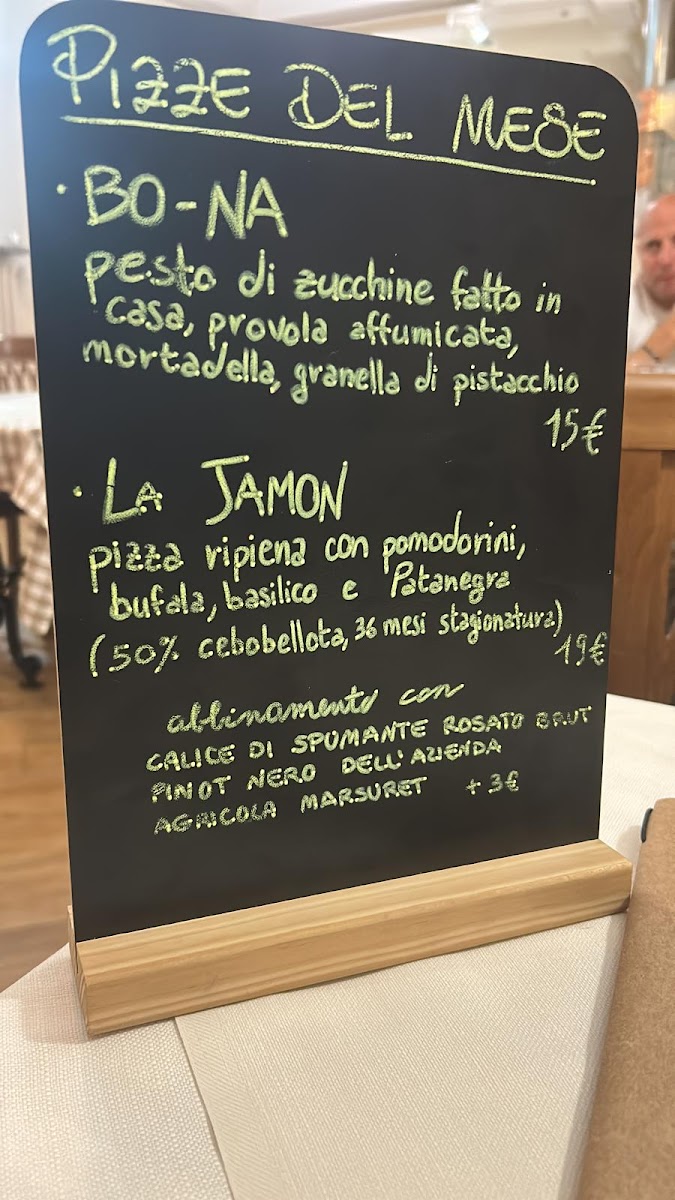 PIZZE DEL MESE
· BO-NA
pesto di zucchine fatto in
casa, provola affumicata,
mortadella, granella di pistacchio
15€
· LA JAMON
pizza ripiena con pomodorini,
bufala, basilico e Patanegra
(50% cebobellota, 36 mesi stagionatura)
19€
abbinamento con
CALICE DI SPUMANTE ROSATO BRUT
PINOT NERO DELL'AZIENDA
AGRICOLA MARSURET + 3€